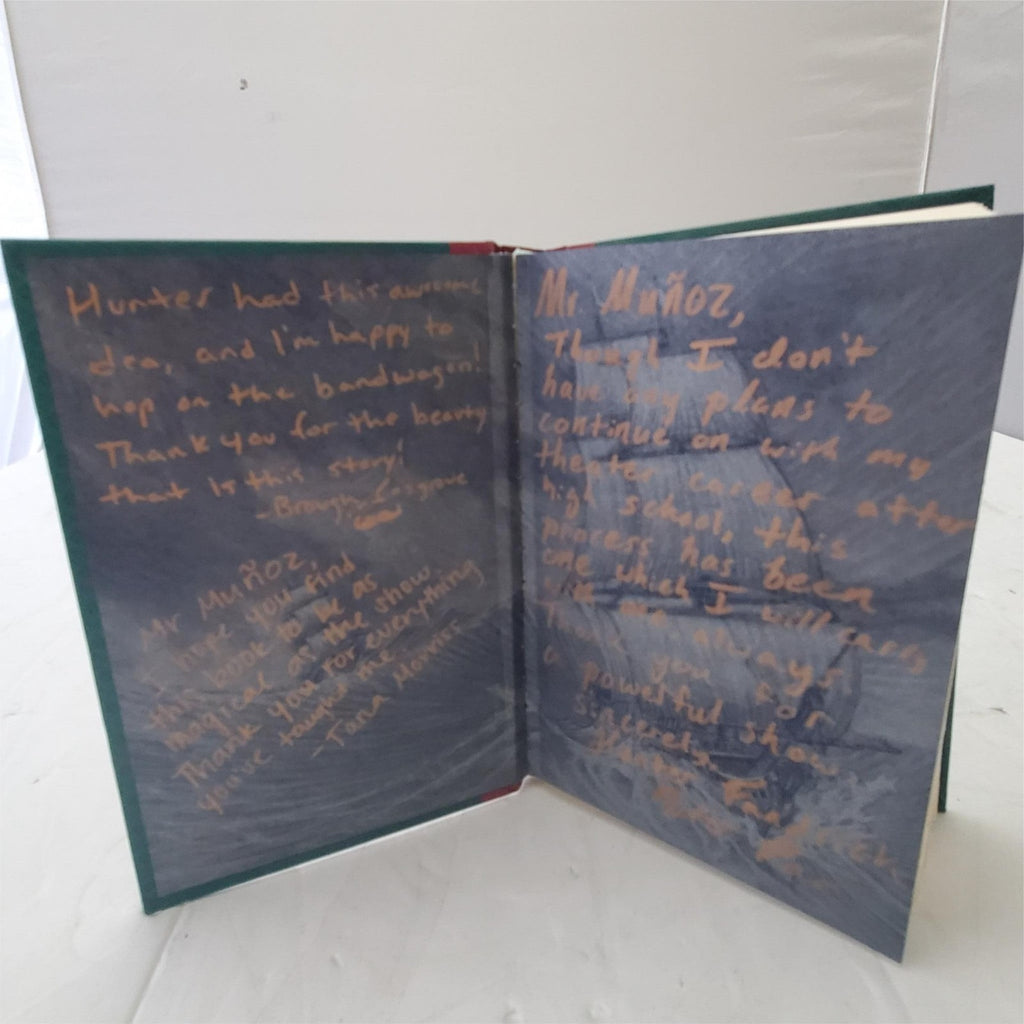 Hunter had this awesome
idea, and I'm happy to
hop on the bandwagon!
Thank you for the beauty
that is this story!
Mr Muñoz,
I hope you find
this book to be as
magical as the show.
Thank you for everything
you've taught me
-Tana
Mr. Muñoz,
Though I don't
have any plans to
continue on with my
theater career after
high school, this
process has been
one which I will carry
with me always
Thank you for
a powerful show
Sincerely,